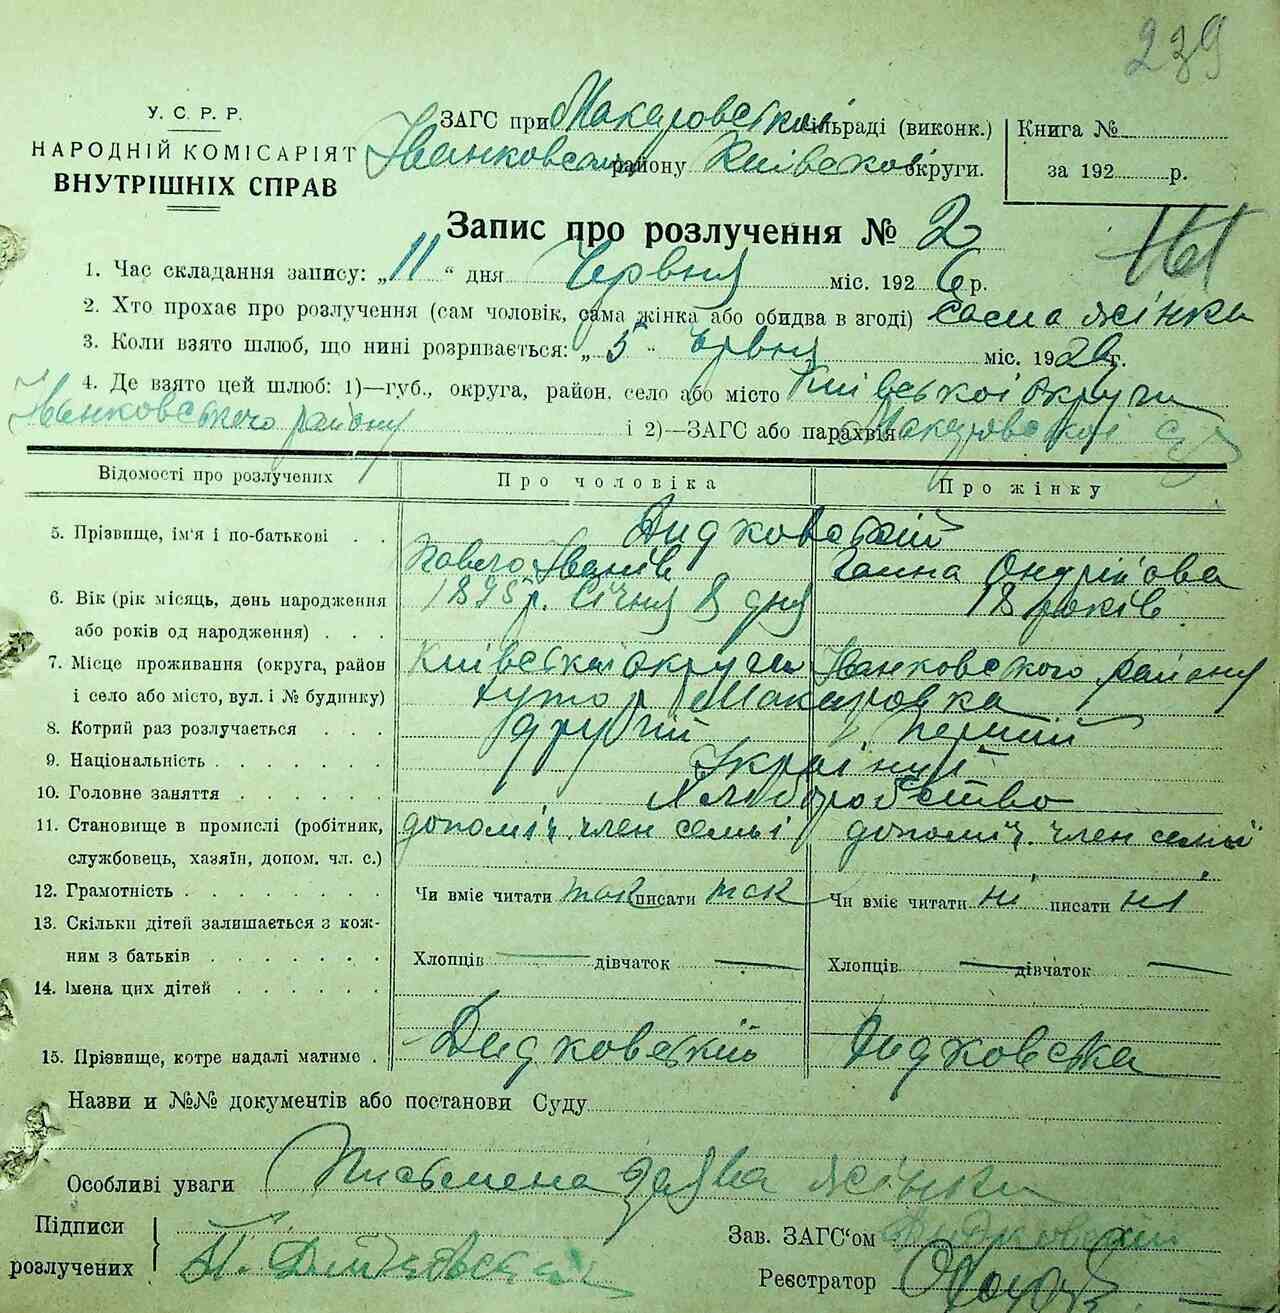 239
У. С. Р. Р.
НАРОДНІЙ КОМІСАРІЯТ
ВНУТРІШНІХ СПРАВ
ЗАГС при Макаровский сільраді (виконк.)
Іванковском району Київской округи.
Книга №
за 192 р.
Запис про розлучення № 2
1. Час складання запису: „11“ дня Червня міс. 1926 р.
2. Хто прохає про розлучення (сам чоловік, сама жінка або обидва в згоді) сама жінка
3. Коли взято шлюб, що нині розривається: „5“ Червня міс. 192 г.
4. Де взято цей шлюб: 1)—губ., округа, район, село або місто Київської округи
Іванковського району і 2)—ЗАГС або парахвія Макаровскої с/р
Відомості про розлучених Про чоловіка Про жінку
5. Прізвище, ім'я і по-батькові . . Дидковский
Павло Іванів Ганна Ондрій'ова
6. Вік (рік місяць, день народження 1895 р. Січня 8 дня 18 років
або років од народження) . . .
7. Місце проживання (округа, район Київської округи Іванковского району
і село або місто, вул. і № будинку) хутор Макаровка
8. Котрий раз розлучається . . . другий перший
9. Національність . . . . . . . Українці
10. Головне заняття . . . . . . Хліборобство
11. Становище в промислі (робітник, допоміч. член семьі допоміч. член семьі
службовець, хазяїн, допом. чл. с.)
12. Грамотність . . . . . . . . Чи вміє читати так писати так Чи вміє читати ні писати ні
13. Скільки дітей залишається з кож-
ним з батьків . . . . . . . Хлопців — дівчаток — Хлопців — дівчаток —
14. Імена цих дітей . . . . . .
15. Прізвище, котре надалі матиме . Дидковский Дидковска
Назви и №№ документів або постанови Суду
Особливі уваги Письмена заява жінки
Підписи
розлучених
Зав. ЗАГС'ом Дидковский
Реєстратор